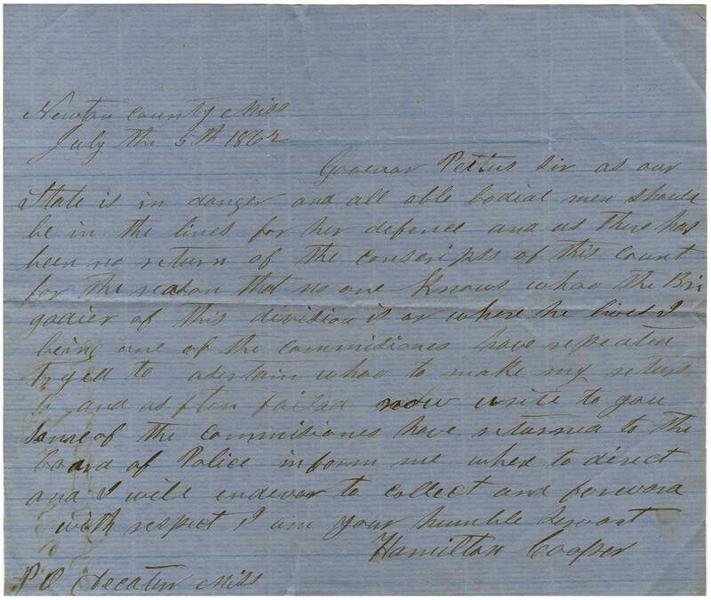 Newton County Miss
July the 5th 1862
Goovenor Pettus Sir as our
State is in danger and all able bodied men should
be in the lines for her defence and as there has
been no return of the conscripts of this Count
for the reason that no one knows whoo the Bri
gadier of this division is or where he lives I
being one of the commisiones have repeated
tryed to asertain whoo to make my return
to and as often failed now write to you
Some of the commisiones have returned to the
board of Police inform me where to direct
and I will endevor to collect and forward
with respect I am your humble Servant
Hamilton Cooper
P O Decatur Miss